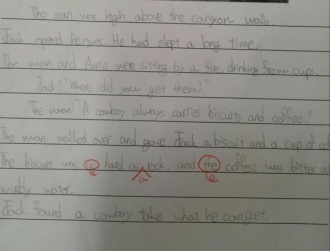 The sun was high above the canyon walls.
Jack opend his eyes. He had slept a long time.
The man and Annie were siting by a fire, drinking from cups.
Jack: "Where did you get them?"
The man: "A cowboy always carries biscuits and coffee."
The man walked over and gave Jack a biscuit and a cup of co
The biscuit was as hard as rock and the coffee was bitter as
a
muddy water.
Jack found a cowboy take what he can get.